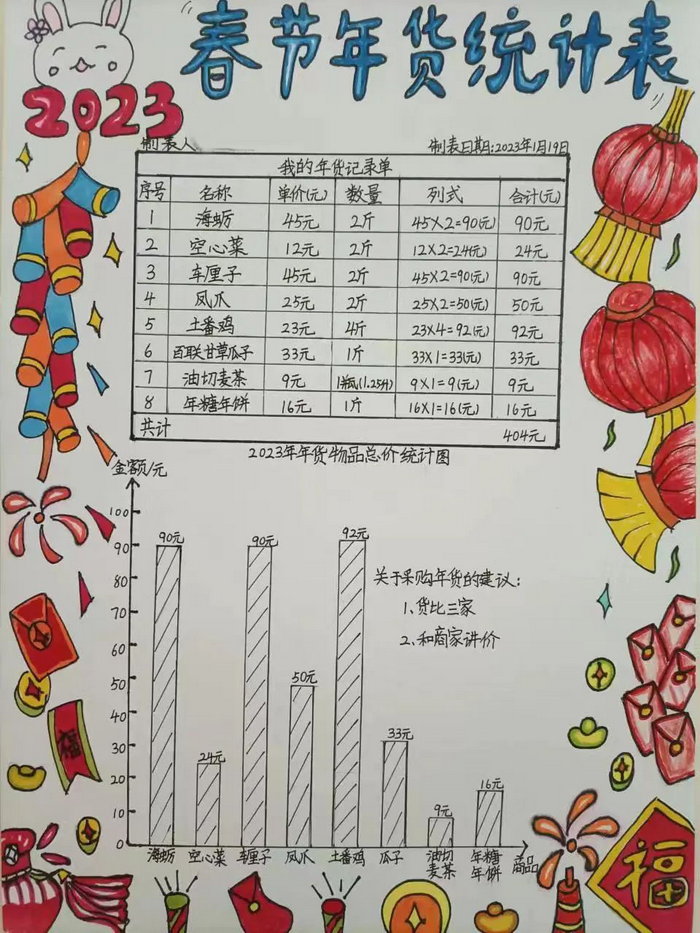 春节年货统计表
2023
制表人 制表日期:2023年1月19日
我的年货记录单
序号 名称 单价(元) 数量 列式 合计(元)
1 海蛎 45元 2斤 45×2=90(元) 90元
2 空心菜 12元 2斤 12×2=24(元) 24元
3 车厘子 45元 2斤 45×2=90(元) 90元
4 凤爪 25元 2斤 25×2=50(元) 50元
5 土番鸡 23元 4斤 23×4=92(元) 92元
6 百联甘草瓜子 33元 1斤 33×1=33(元) 33元
7 油切麦茶 9元 1瓶(1.25升) 9×1=9(元) 9元
8 年糖年饼 16元 1斤 16×1=16(元) 16元
共计 404元
2023年年货物品总价统计图
金额/元
100
90
80
70
60
50
40
30
20
10
0
90元 24元 90元 50元 92元 33元 9元 16元
关于采购年货的建议:
1、货比三家
2、和商家讲价
海蛎 空心菜 车厘子 凤爪 土番鸡 瓜子 油切麦茶 年糖年饼 商品
福
福